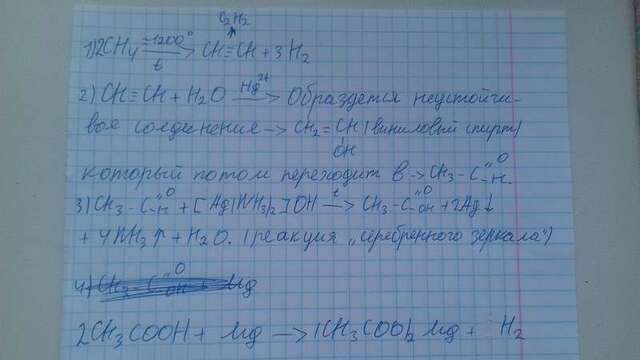 C₂H₂
1) 2CH₄ ≈1200° t → CH≡CH + 3H₂
2) CH≡CH + H₂O Hg²⁺ → Образдется неустойчи-
вое соединения → CH₂=CH (виниловый спирт)
OH
который потом переходит в → CH₃-C=O-H.
3) CH₃-C=O-H + [Ag(NH₃)₂]OH t → CH₃-C=O-OH + 2Ag↓
+ 4NH₃↑ + H₂O. (реакция „серебренного зеркала")
4)
2CH₃COOH + Mg → (CH₃COO)₂Mg + H₂